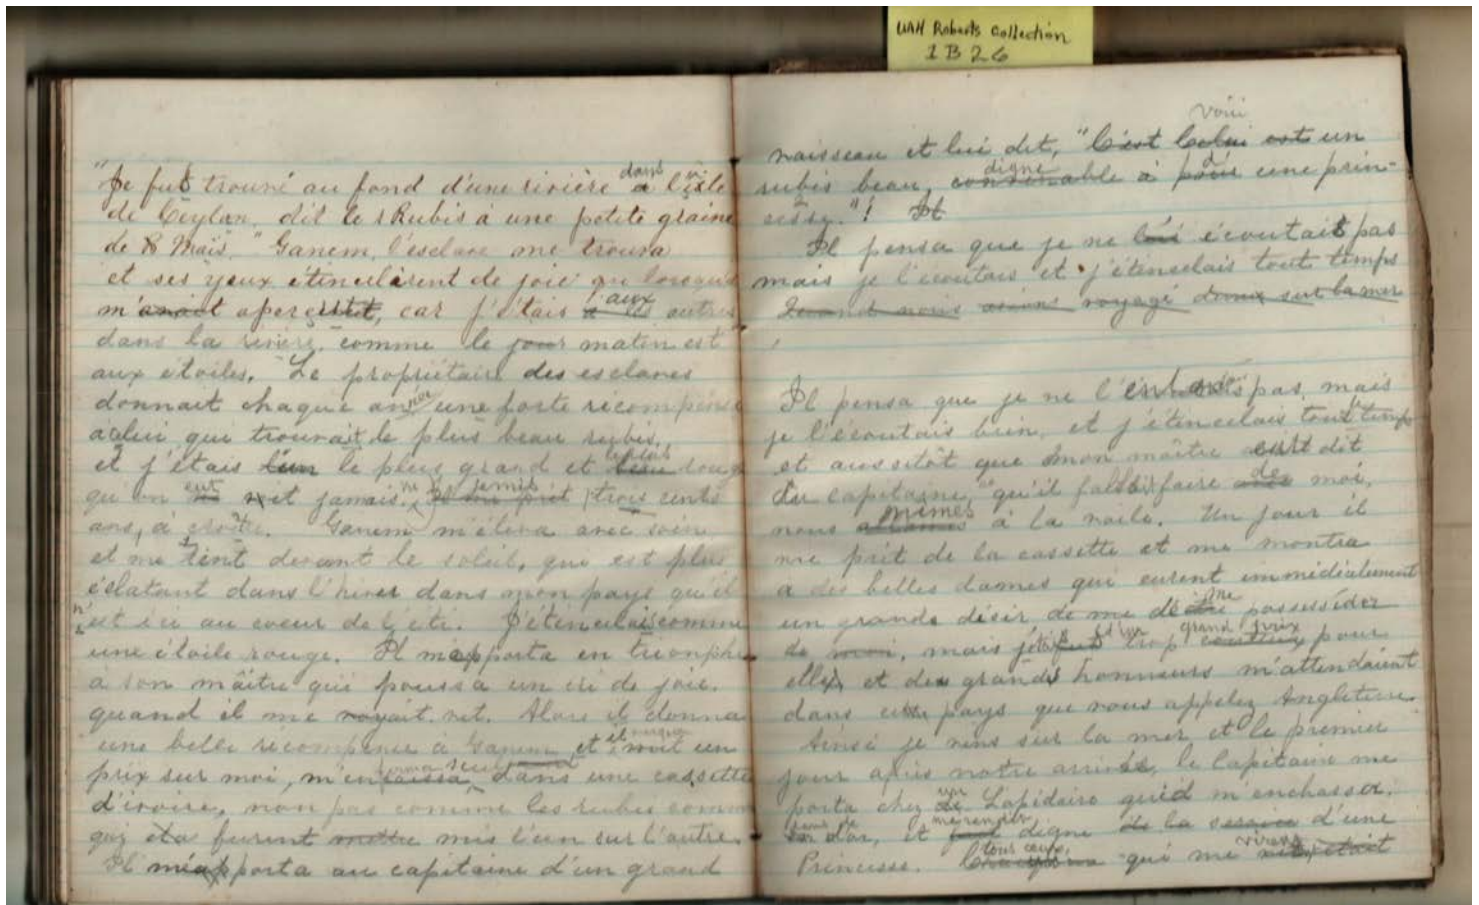 UAH Roberts Collection
1B26
"Je fus trouvé au fond d'une rivière dans l'isle
de Ceylan, dit le Rubis à une petite graine
de Mais. "Ganem, l'esclave me trouva
et ses yeux étincelèrent de joie lorsqu'il
m'avait aperçu, car j'étais aux autres
dans la rivière, comme le jour matin est
aux étoiles. Le propriétaire des esclaves
donnait chaque année une forte récompense
à celui qui trouvait le plus beau rubis,
et j'étais l'un le plus grand et le plus beau rouge
qu'on eut vit jamais. Il me prit trois cents
ans, à croître. Ganem m'éleva avec soin
et me tint devant le soleil, que est plus
éclatant dans l'hiver dans mon pays qu'il
n'est ici au coeur de l'été. J'étincelais comme
une étoile rouge. Il m'apporta en triomphe
à son maître qui poussa un cri de joie.
quand il me voyait vit. Alors il donna
une belle récompense à Ganem, et il mit un
prix sur moi, m'en laissa dans une cassette
d'ivoire, non pas comme les rubis comm
qui furent mettre mis l'un sur l'autre.
Il m'apporta au capitaine d'un grand
voici
vaisseau et lui dit, "C'est Celui est un
rubis beau, convenable digne à pour une prin-
cesse."! Il
Il pensa que je ne lui écoutait pas
mais je l'écoutais et j'étinselais tout temps
Quand nous avions voyagé dans sur la mer
Il pensa que je ne l'entendis pas, mais
je l'écoutais bien, et j'étincelais tout le temps
et aussitôt que mon maître eut dit
du capitaine, "qu'il fallait faire avec de moi,
nous allames mîmes à la voile. Un jour il
me prit de la cassette et me montra
à des belles dames qui eurent immédiatement
un grande désir de me posseséder
de moi, mais j'étais d'un trop grand prix couteux pour
elles, et des grands honneurs m'attendaient
dans cette pays que vous appelez Angleterre.
Ainsi je vins sur la mer et le premier
jour après notre arrivée, le Capitaine me
porta chez un Le Lapidaire qui'd m'enchassa.
d'or, et me rendit digne de la service d'une
Princesse. Chacun tous ceux, qui me virent était